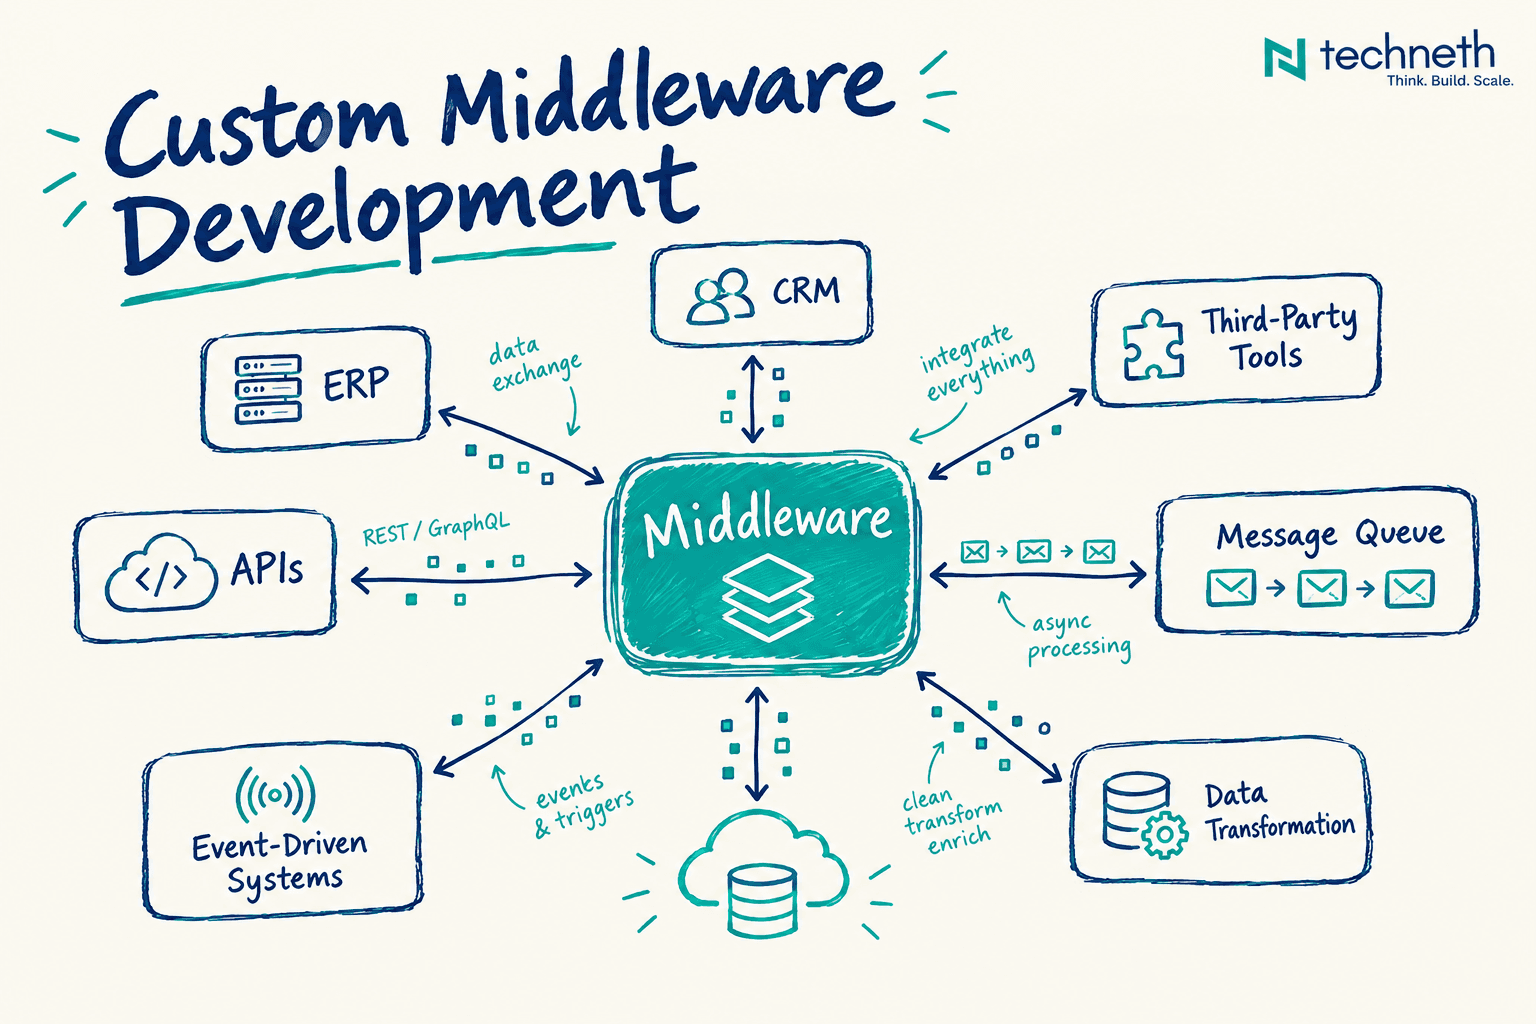 techneth
Think. Build. Scale.
Custom Middleware
Development
CRM
Third-Party
Tools
ERP
data
exchange
integrate
everything
Middleware
REST / GraphQL
APIs
Message Queue
async
processing
Event-Driven
Systems
events
& triggers
clean
transform
enrich
Data
Transformation